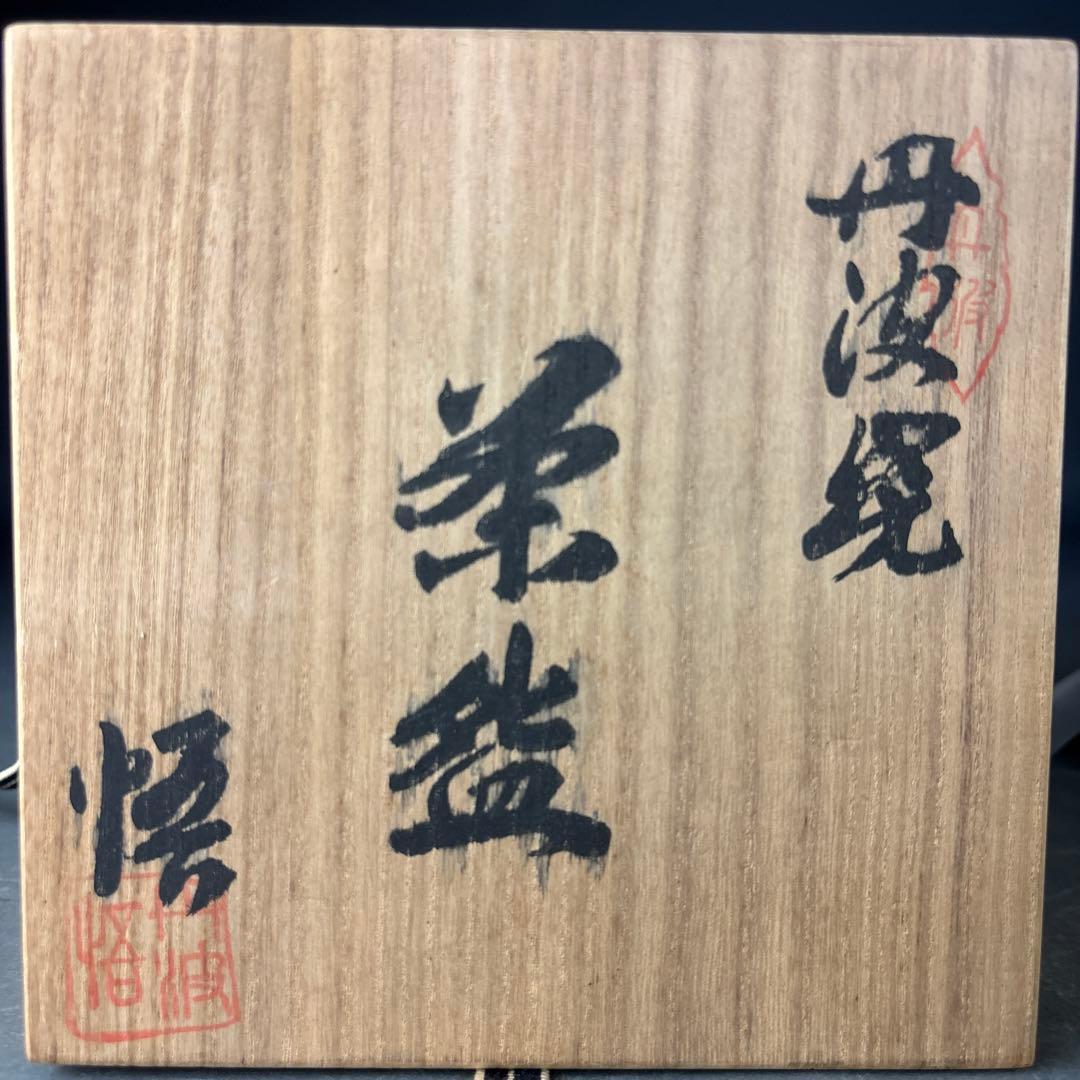 丹波焼
茶盌
悟
丹波
丹波
悟